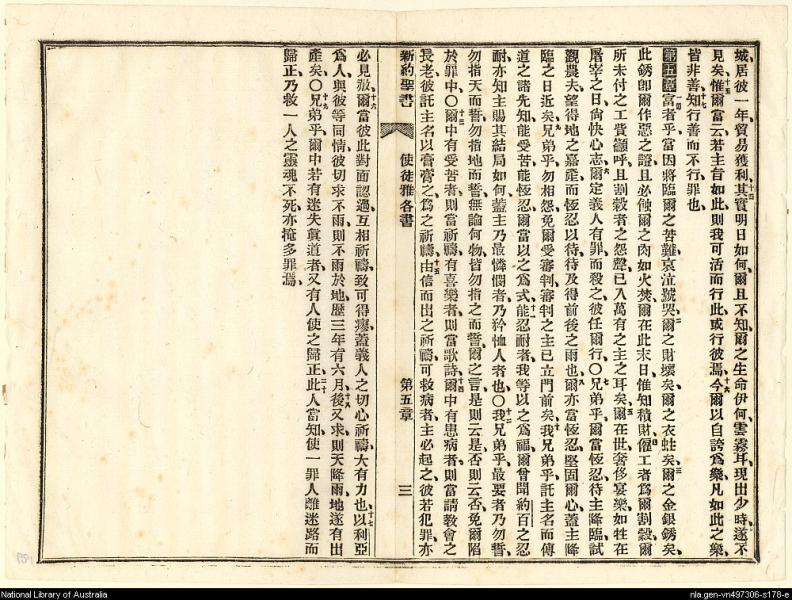 城、居彼一年、貿易獲利、其實明日如何、爾且不知、爾之生命伊何、雲霧耳、現出少時、遂不
見矣、惟爾當云、若主旨如此、則我可活而行此、或行彼焉、今爾以自誇爲樂、凡如此之樂、
皆非善、知行善而不行、罪也、
第五章 富者乎、當因將臨爾之苦難、哀泣號哭、爾之財壞矣、爾之衣蛀矣、爾之金銀銹矣、
此銹卽爾作惡之證、且必蝕爾之肉如火焚、爾在此末日、惟知積財、傭工者爲爾割穀、爾
所未付之工貲、籲呼、且割穀者之怨聲、已入萬有之主之耳矣、爾在世、奢侈宴樂、如牲在
屠宰之日、尙快心志、爾定義人有罪而殺之、彼任爾行、○兄弟乎、爾當恆忍、待主降臨、試
觀農夫望得地之嘉產、而恆忍以待、待及得前後之雨也、爾亦當恆忍、堅固爾心、蓋主降
臨之日近矣、兄弟乎、勿相怨、免爾受審判、審判之主已立門前矣、我兄弟乎、託主名而傳
道之諸先知、能受苦、能恆忍、爾當以之爲式、能忍耐者、我等以之爲福、爾曾聞約百之忍
耐、亦知主賜其結局如何、蓋主乃最憐憫者、乃矜恤人者也、○我兄弟乎、最要者乃勿誓、
勿指天而誓、勿指地而誓、無論何物、皆勿指之而誓、爾之言、是則云是、否則云否、免爾陷
於罪中、○爾中有受苦者、則當祈禱、有喜樂者、則當歌詩、爾中有患病者、則當請敎會之
長老、彼託主名以膏膏之、爲之祈禱、由信而出之祈禱、可救病者、主必起之、彼若犯罪、亦
新約聖書 使徒雅各書 第五章 三
必見赦、爾當彼此對面認過、互相祈禱、致可得瘳、蓋義人之切心祈禱、大有力也、以利亞
爲人與彼等同情、彼切求不雨、則不雨於地、歷三年有六月、後又求、則天降雨、地遂有出
產矣、○兄弟乎、爾中若有迷失眞道者、又有人使之歸正、此人當知使一罪人離迷路而
歸正、乃救一人之靈魂不死、亦掩多罪焉、
National Library of Australia
nla.gen-vn497306-s178-e